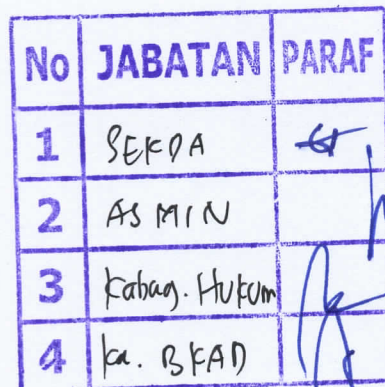 No JABATAN PARAF
1 SEKDA
2 ASMIN
3 Kabag. Hukum
4 ka. BKAD